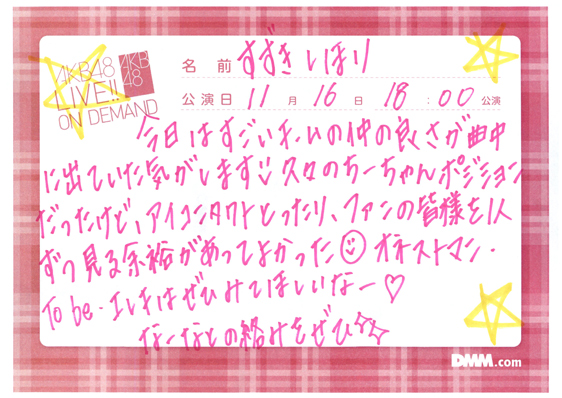 AKB48
LIVE!!
ON DEMAND
AKB
48
名前 すずきしほり
公演日 11月16日 18:00公演
今日はすごいみんの仲の良さが曲中
に出ていた気がします 久々のちーちゃんポジション
だったけど、アイコンタクトとったり、ファンの皆様を1人
ずつ見る余裕があってよかった オネストマン・
To be・エレキはぜひみてほしいなー♡
なーなとの絡みをぜひ☆☆
DMM.com